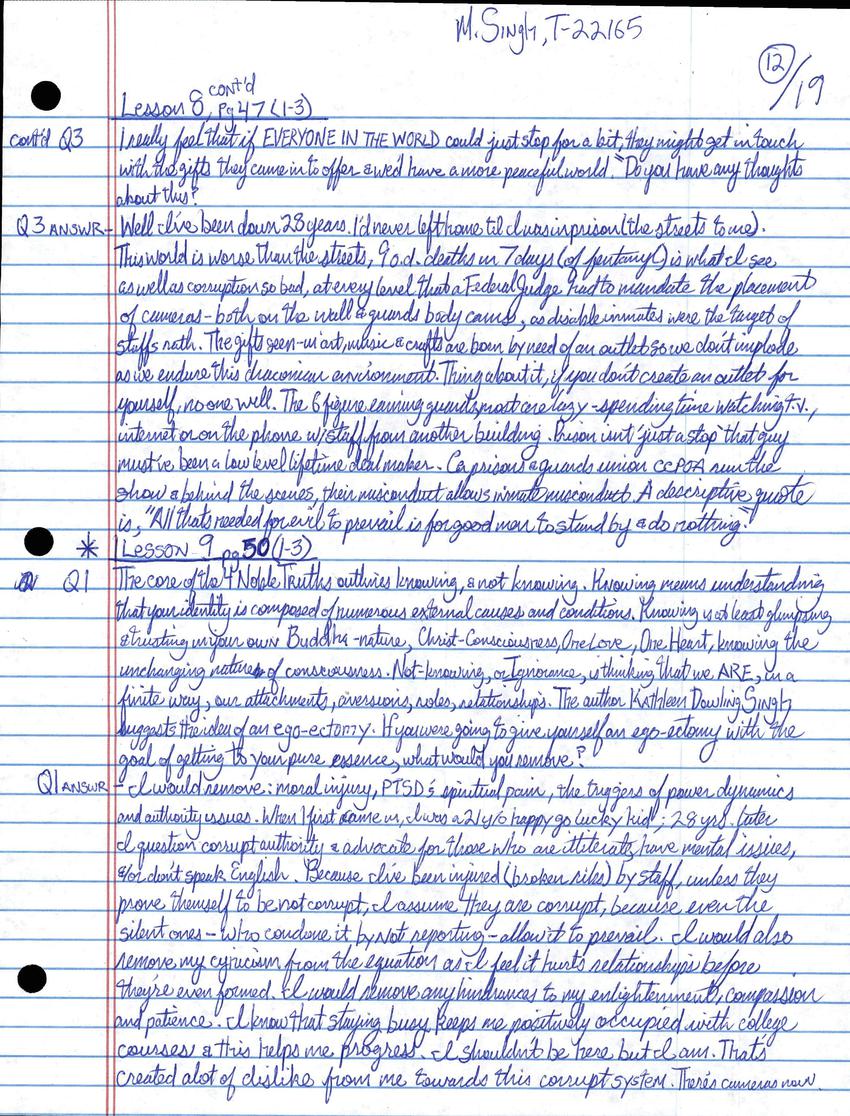 M. Singh, T-22165
12/19
Lesson 8, cont'd Pg 47 (1-3)
cont'd Q3 I really feel that if EVERYONE IN THE WORLD could just stop for a bit, they might get in touch
with the gifts they came in to offer & we'd have a more peaceful world." Do you have any thoughts
about this?
Q3 ANSWR- Well I've been down 28 years. I'd never left home til I was in prison (the streets to me).
This world is worse than the streets, 9 o.d. deaths in 7 days (of fentanyl) is what I see
as well as corruption so bad, at every level that a Federal Judge had to mandate the placement
of cameras - both on the wall & guards body cams, as disable inmates were the target of
staffs rath. The gifts seen - in art, music & crafts are born by need of an outlet so we don't implode
as we endure this draconian environment. Thing about it, if you don't create an outlet for
yourself, no one will. The 6 figure earning guards, most are lazy - spending time watching t.v.,
internet or on the phone w/staff from another building. Prison isn't "just a stop" that guy
must've been a low level lifetime deal maker. Ca prisons & guards union CCPOA run the
show & behind the scenes, their misconduct allows inmate misconduct. A descriptive quote
is, "All that's needed for evil to prevail is for good man to stand by & do nothing."
* Lesson 9 pg 50 (1-3)
Q1 The core of the 4 Noble Truths outlines knowing, & not knowing. Knowing means understanding
that your identity is composed of numerous external causes and conditions. Knowing is at least glimpsing
& trusting in your own Buddha-nature, Christ-Consciousness, One Love, One Heart, knowing the
unchanging nature of consciousness. Not-knowing, or Ignorance, is thinking that we ARE, in a
finite way, our attachments, aversions, roles, relationships. The author Kathleen Dowling Singh
suggests the idea of an ego-ectomy. If you were going to give yourself an ego-ectomy with the
goal of getting to your pure essence, what would you remove?
Q1 ANSWR - I would remove: moral injury, PTSD's spiritual pain, the triggers of power dynamics
and authority issues. When I first came in, I was a 21 y/o happy go lucky kid"; 28 yrs. later
I question corrupt authority & advocate for those who are illiterate, have mental issues,
&/or don't speak English. Because I've been injured (broken ribs) by staff, unless they
prove themself to be not corrupt, I assume they are corrupt, because even the
silent ones - who condone it by not reporting - allow it to prevail. I would also
remove my cynicism from the equation as I feel it hurts relationships before
they're even formed. I would remove any hindrances to my enlightenment, compassion
and patience. I know that staying busy keeps me positively occupied with college
courses & this helps me progress. I shouldn't be here but I am. That's
created alot of dislike from me towards this corrupt system. There's cameras now.